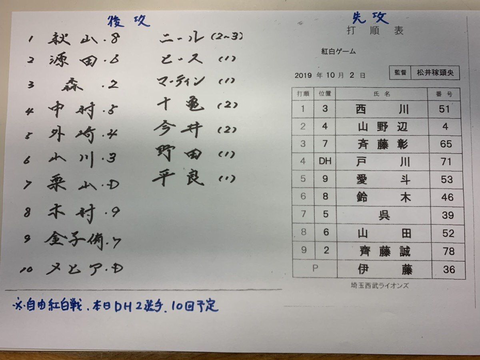 後攻
1 秋山.8
2 源田.6
3 森.2
4 中村.5
5 外崎.4
6 山川.3
7 栗山.D
8 木村.9
9 金子侑.7
10 メヒア.D
ニール (2~3)
ヒース (1)
マーティン (1)
十亀 (2)
今井 (2)
野田 (1)
平良 (1)
※自由紅白戦、本日DH2選手、10回予定
先攻
打順表
紅白ゲーム
2019 年 10 月 2 日 監督 松井稼頭央
打順 位置 氏名 番号
1 3 西川 51
2 4 山野辺 4
3 7 斉藤彰 65
4 DH 戸川 71
5 9 愛斗 53
6 8 鈴木 46
7 5 呉 39
8 6 山田 52
9 2 齊藤誠 78
P 伊藤 36
埼玉西武ライオンズ